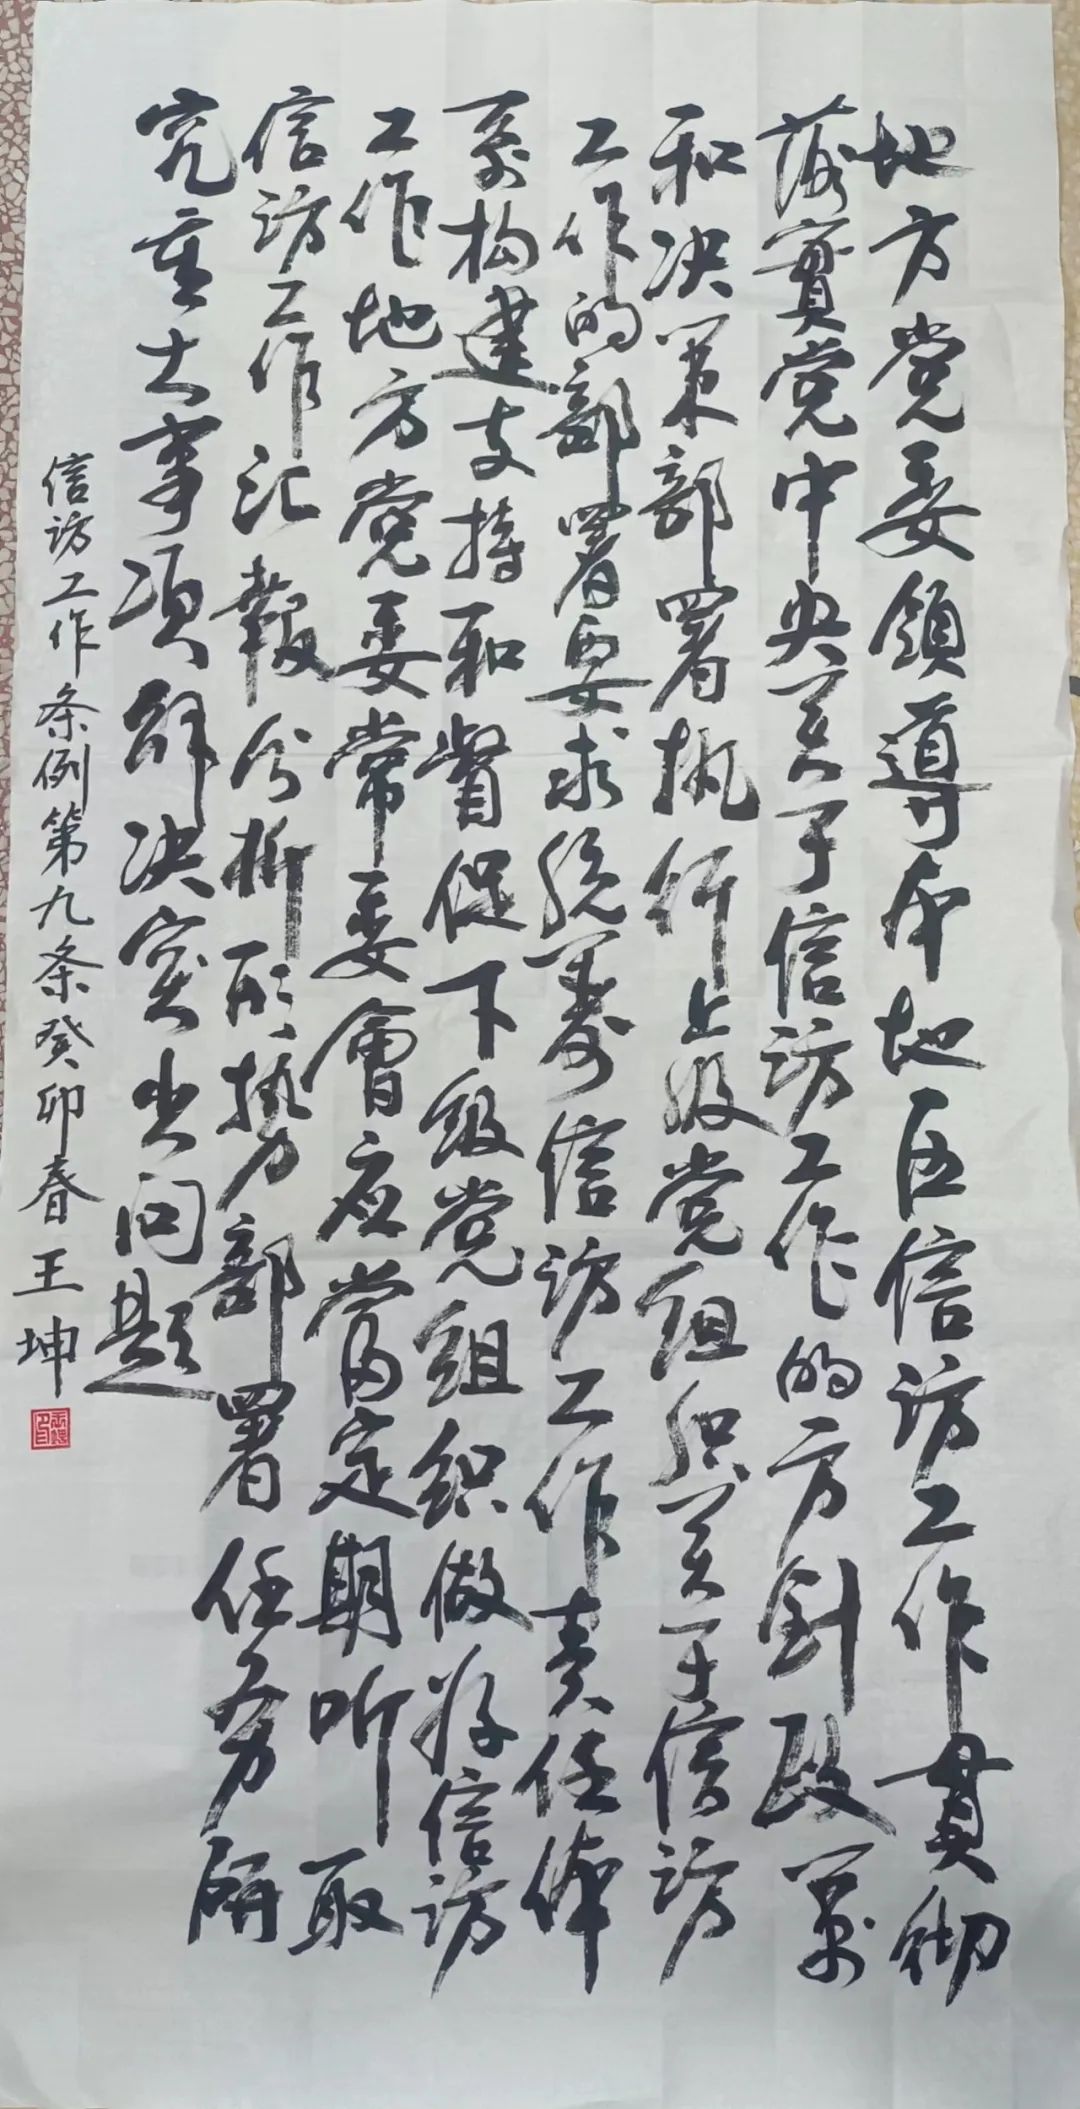 地方党委领导本地区信访工作贯彻
落實党中央关于信访工作的方針政策
和决策部署执行上级党组织关于信访
工作的部署要求统筹信访工作责任体
系构建支持和督促下级党组织做好信访
工作地方党委常委會应当定期听取
信访工作汇報分析形势部署任务研
究重大事项解决突出问题
信访工作条例第九条癸卯春王坤